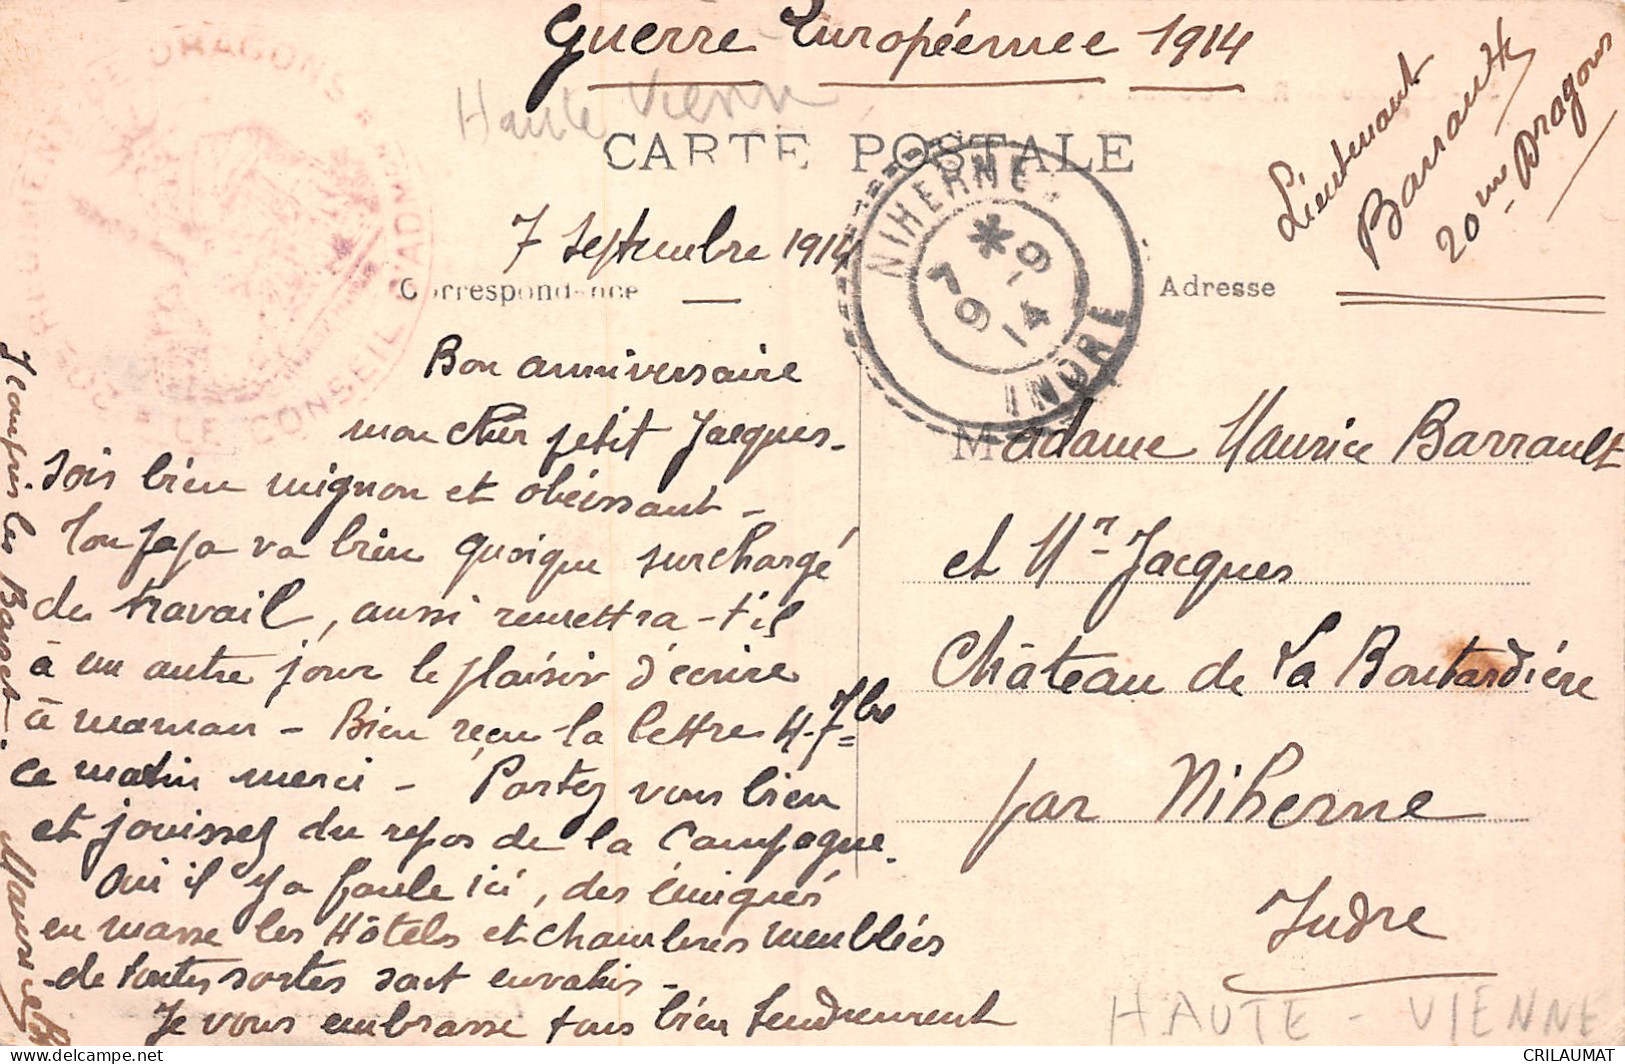 Guerre Européenne 1914
Haute Vienne
CARTE POSTALE
Lieutenant
Barrault
20me Dragons
DRAGONS
CONSEIL D'ADMON
NIHERNE
* 7-9
9 14
INDRE
7 Septembre 1914
Correspondance
Adresse
Bon anniversaire
mon cher petit Jacques.
Sois bien mignon et obéissant -
Ton papa va bien quoique surchargé
de travail, aussi remettra-t'il
à un autre jour le plaisir d'écrire
à maman - Bien reçu la lettre 4-7bre
ce matin merci - Portez vous bien
et jouissez du repos de la campagne.
Oui il y a foule ici, des émigrés
en masse les Hôtels et chambres meublées
de toutes sortes sont envahis -
Je vous embrasse tous bien tendrement
Maurice
Y compris les
Madame Maurice Barrault
et Mr Jacques
Château de La Boutardière
par Niherne
Indre
HAUTE - VIENNE
CRILAUMAT